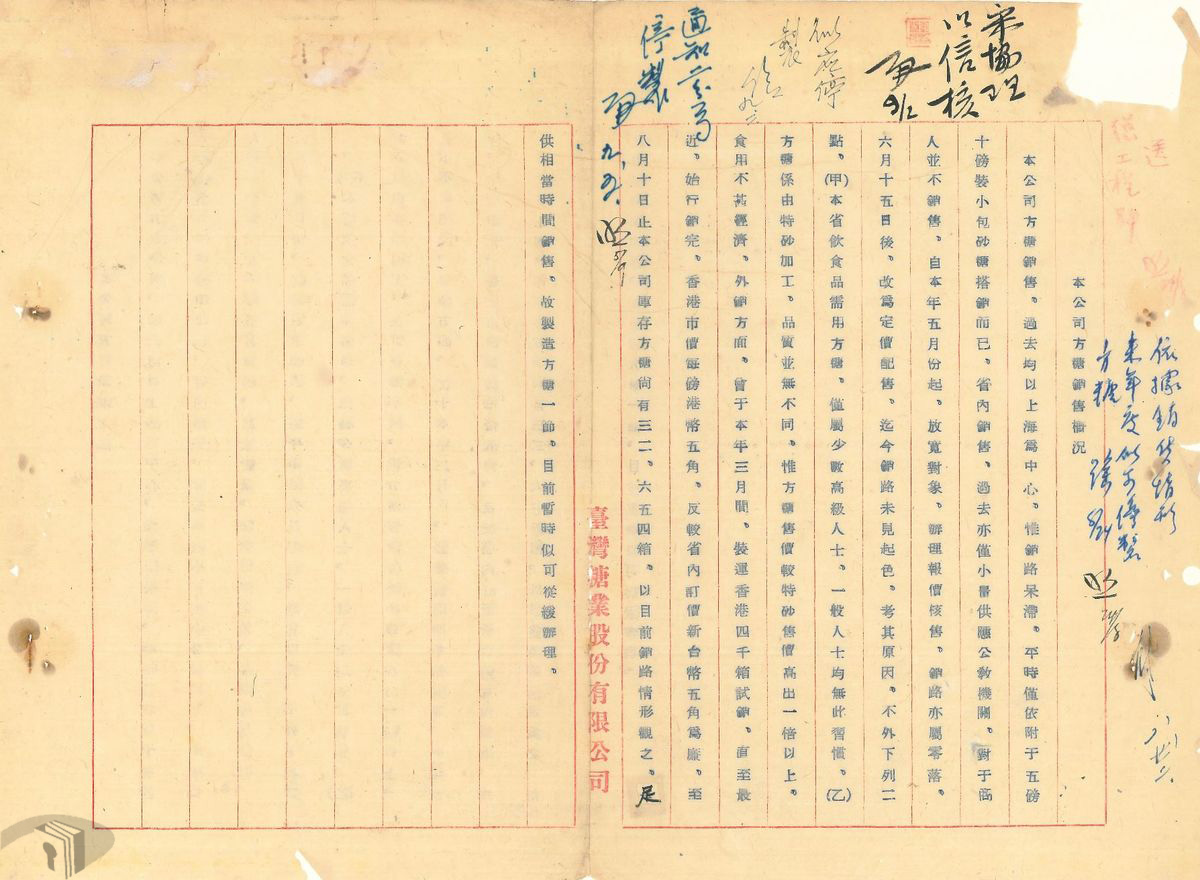 本公司方糖銷售概况
本公司方糖銷售、過去均以上海爲中心、惟銷路呆滯、平時僅依附于五磅
十磅裝小包砂糖搭銷而已、省內銷售、過去亦僅小量供應公教機關、對于商
人並不銷售、自本年五月份起、放寬對象、辦理報價核售、銷路亦屬零落、
六月十五日後、改爲定價配售、迄今銷路未見起色、考其原因、不外下列二
點、(甲)本省飲食品需用方糖、僅屬少數高級人士、一般人士均無此習慣、(乙)
方糖係由特砂加工、品質並無不同、惟方糖售價較特砂售價高出一倍以上、
食用不甚經濟、外銷方面、曾于本年三月間、裝運香港四千箱試銷、直至最
近、始行銷完、香港市價每磅港幣五角、反較省內訂價新台幣五角爲廉、至
八月十日止本公司庫存方糖尚有三二、六五四箱、以目前銷路情形觀之、足
供相當時間銷售、故製造方糖一節、目前暫時似可從緩辦理。
臺灣糖業股份有限公司
依據銷貨情形
來年度似可停製
方糖
宋協理
以信核
似應停
製
通知
停製
九、五、
送
工程師